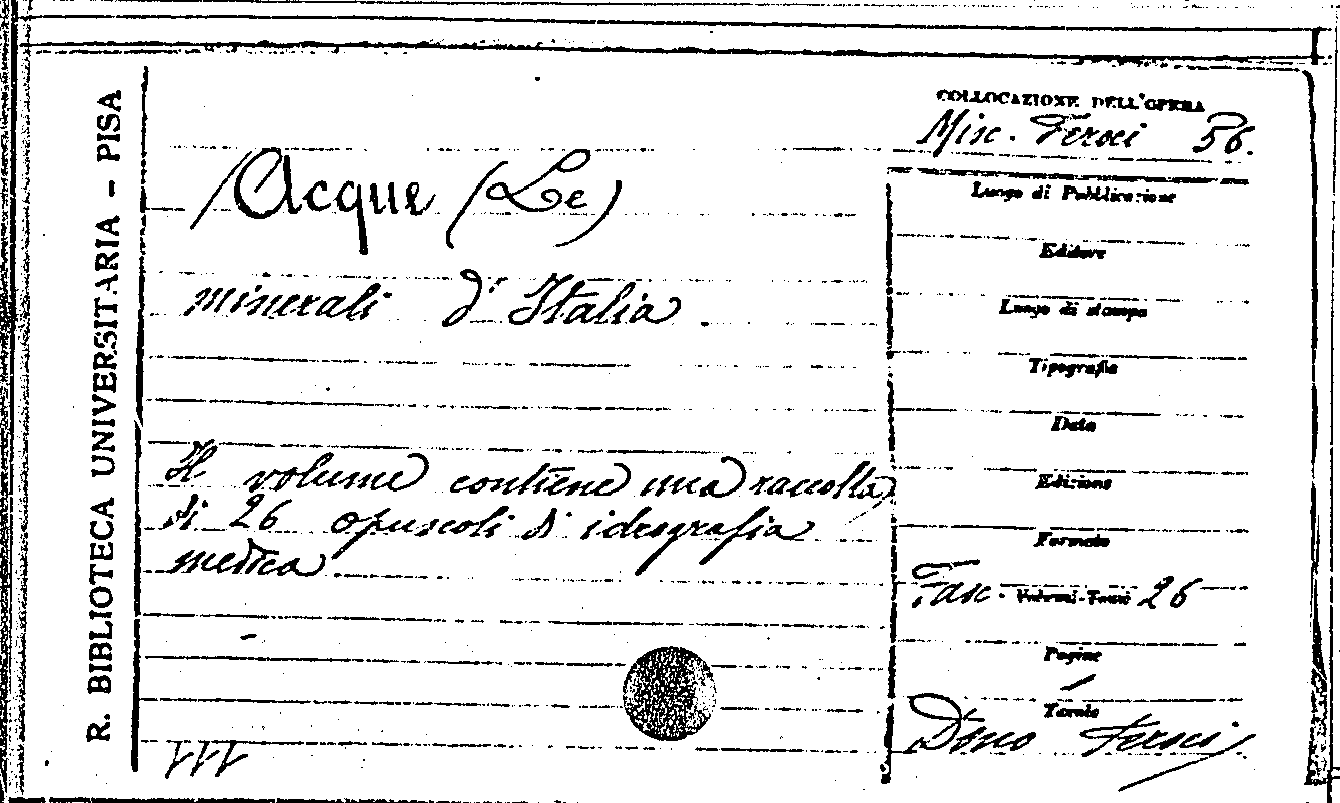 R. BIBLIOTECA UNIVERSITARIA - PISA
COLLOCAZIONE DELL'OPERA
Misc. Feroci 56.
Acque (Le)
minerali d'Italia.
Il volume contiene una raccolta
di 26 opuscoli di idrografia
medica
Luogo di Pubblicazione
Editore
Luogo di stampa
Tipografia
Data
Edizione
Formato
Fasc. Volumi-Tomi 26
Pagine
Tavole
Dono Feroci